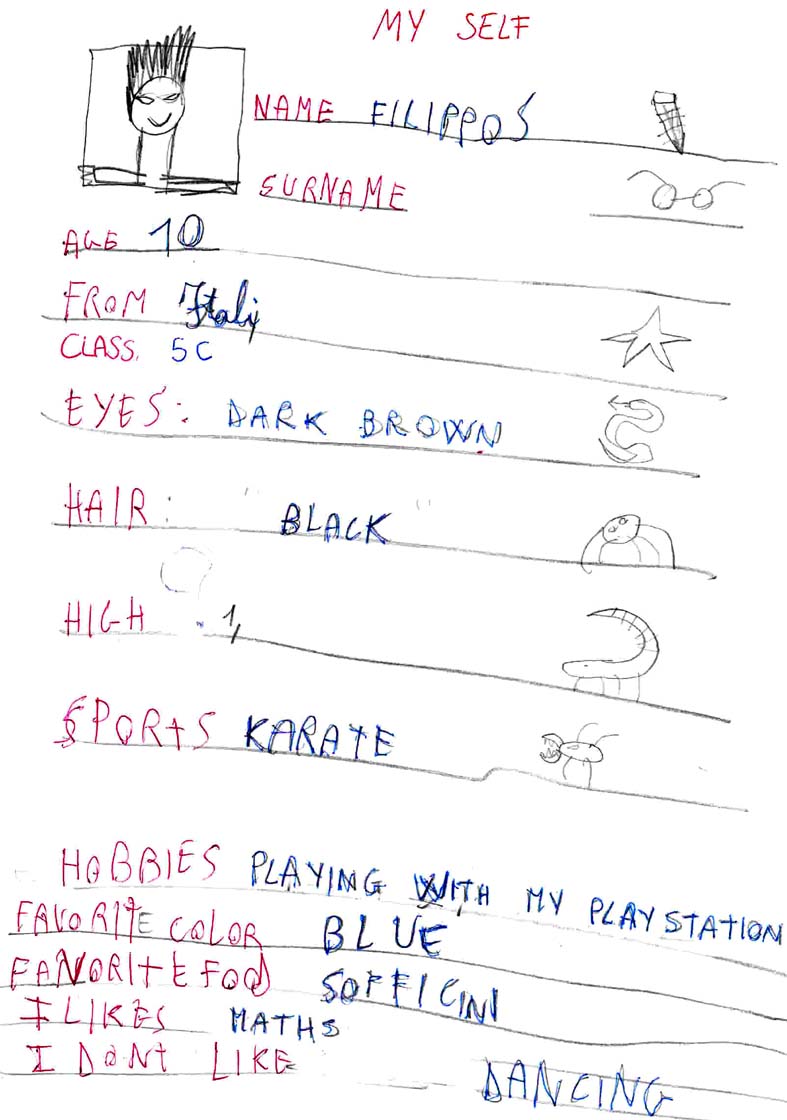 MY SELF
NAME FILIPPOS
SURNAME
AGE 10
FROM Italy
CLASS. 5C
EYES: DARK BROWN
HAIR: " BLACK "
HIGH 1,
SPORTS KARATE
HOBBIES PLAYING WITH MY PLAYSTATION
FAVORITE COLOR BLUE
FAVORITE FOOD SOFFICINI
I LIKES MATHS
I DONT LIKE DANCING